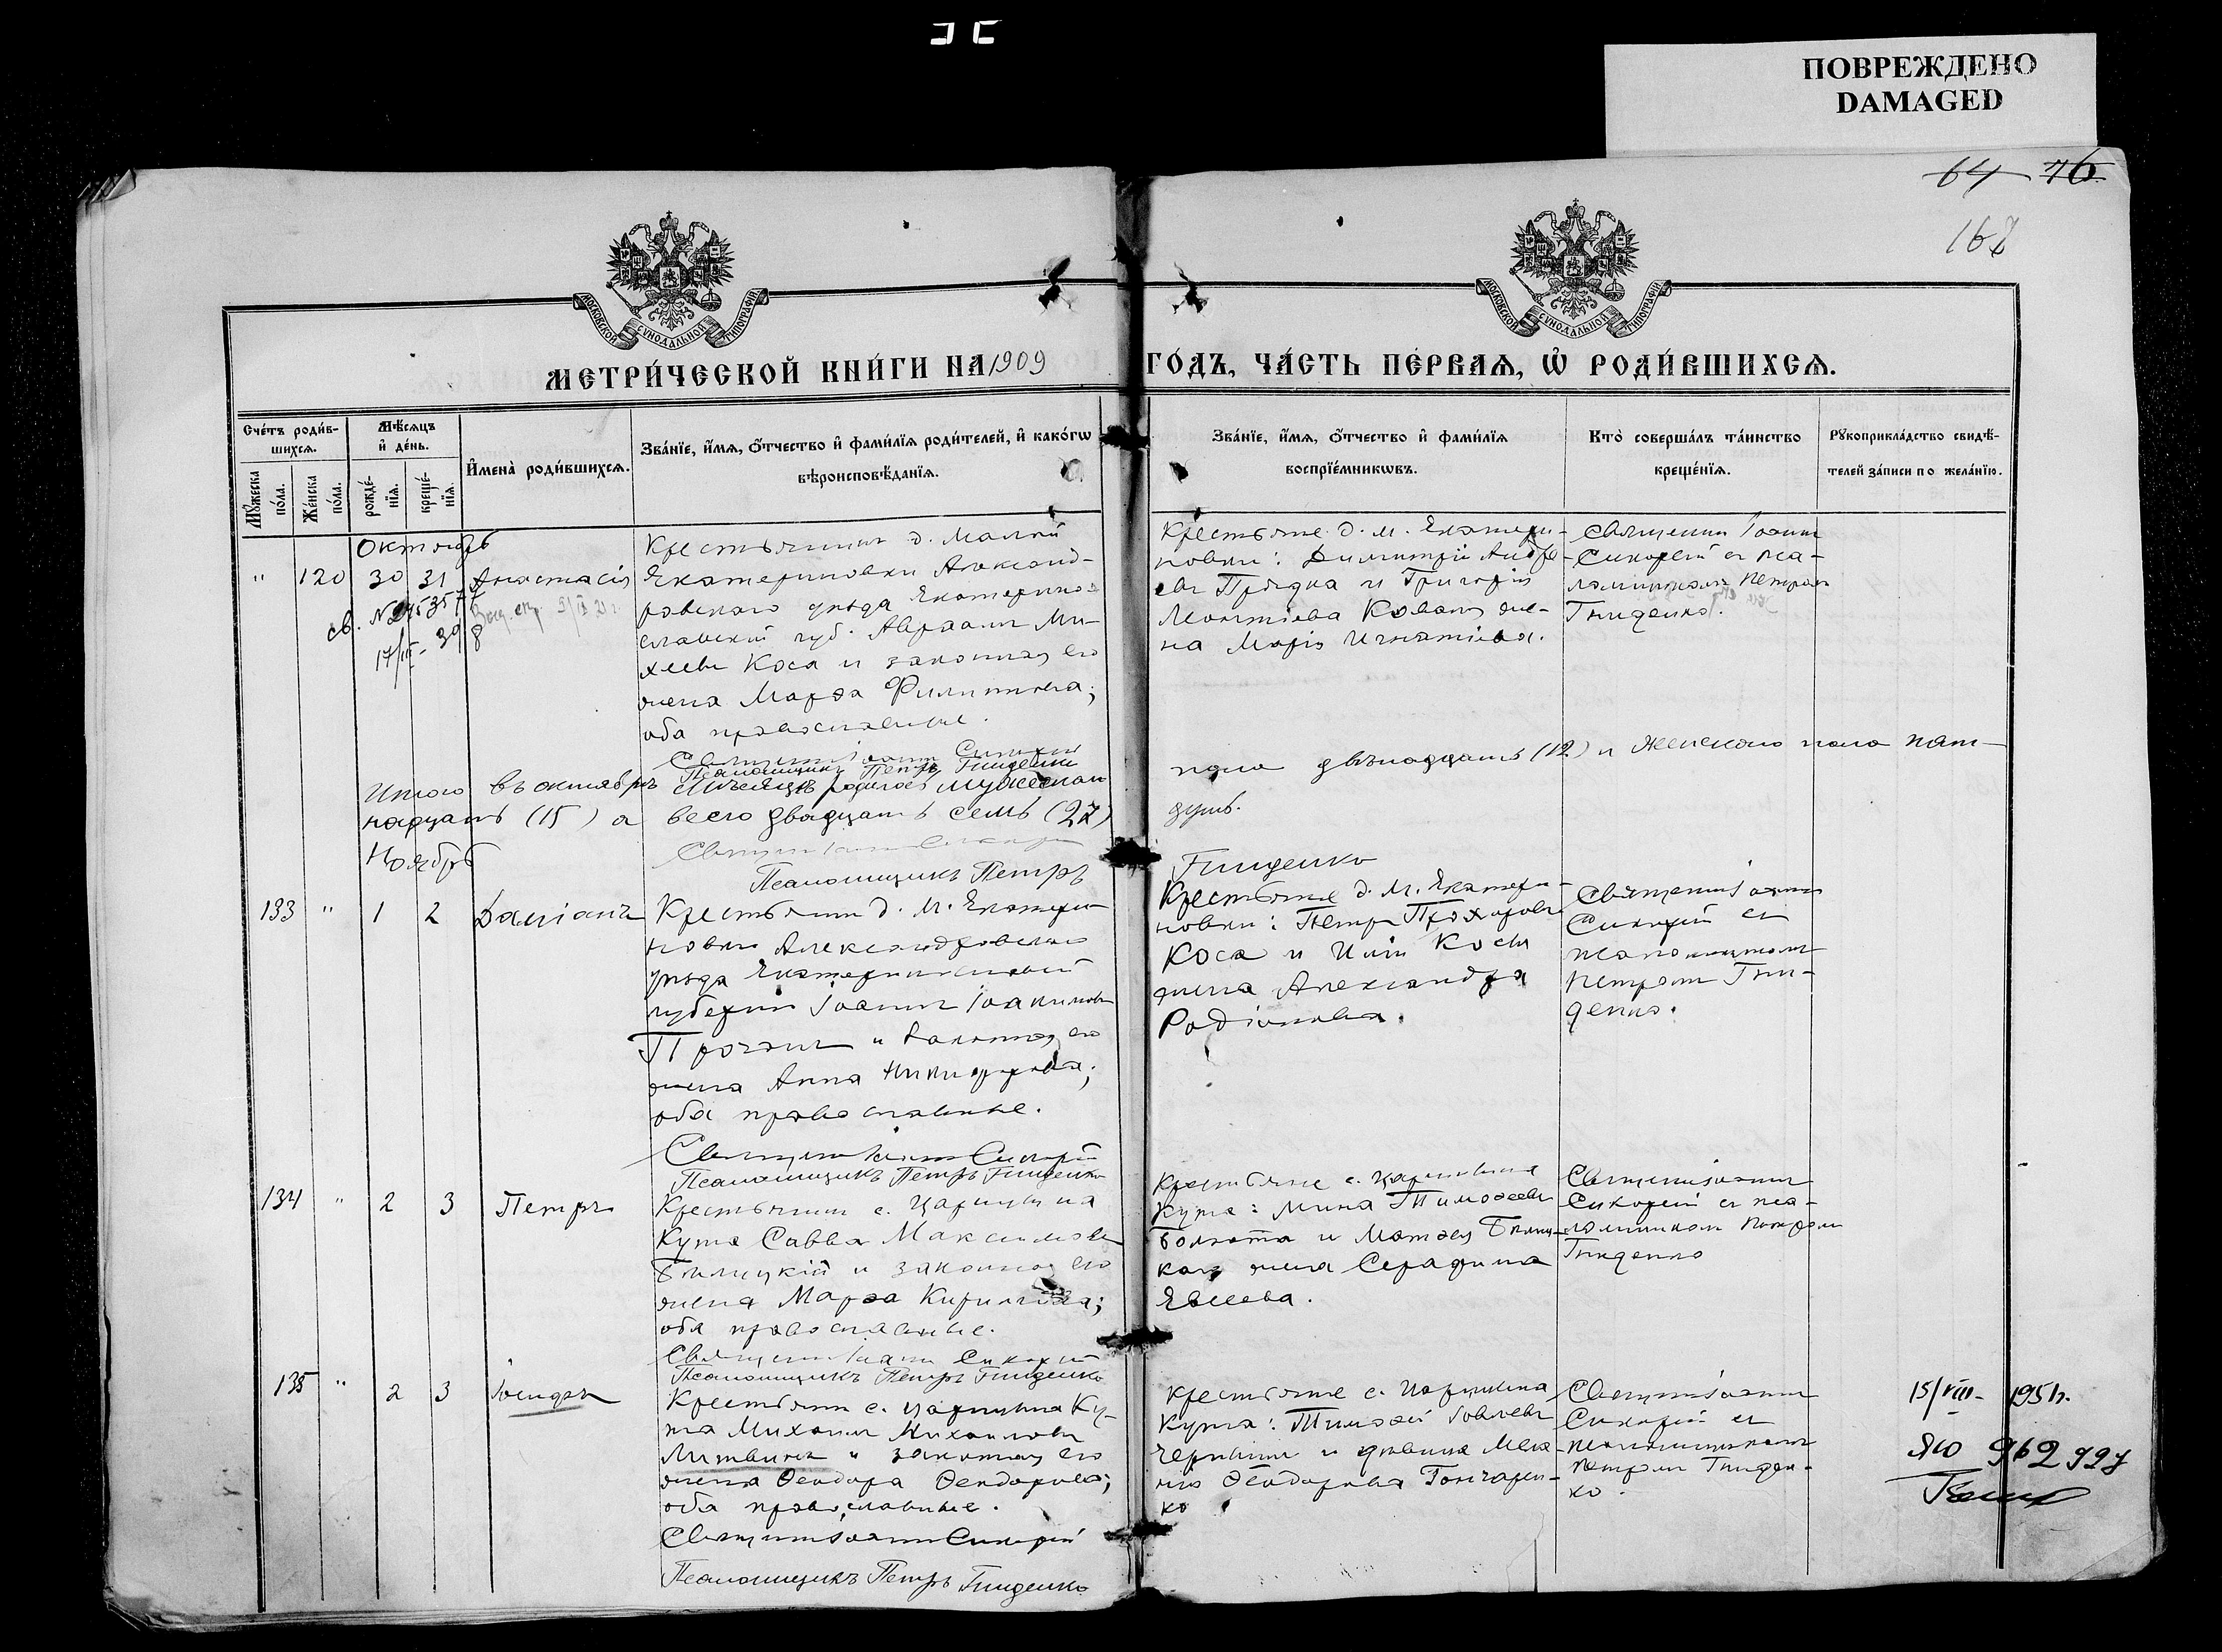 ПОВРЕЖДЕНО
DAMAGED
64 76
МОСКОВСКОЙ СѴНОДАЛЬНОЙ ТИПОГРАФІИ
МОСКОВСКОЙ СѴНОДАЛЬНОЙ ТИПОГРАФІИ
МЕТРИ́ЧЕСКОЙ КНИ́ГИ НА 1909 ГО́ДЪ, ЧА́СТЬ ПЕ́РВАѦ, Ѡ҆ РОДИ́ВШИХСѦ.
Сче́тъ роди́вшихсѧ.
Мꙋ́жеска по́ла.
Же́нска по́ла.
Мѣ́сѧцъ и҆ де́нь.
рожде́нїѧ.
креще́нїѧ.
И҆мена̀ роди́вшихсѧ.
Зва́нїе, и҆́мѧ, ѻ҆́тчество и҆ фами́лїѧ роди́телей, и҆ како́гѡ
вѣроисповѣ́данїѧ.
Зва́нїе, и҆́мѧ, ѻ҆́тчество и҆ фами́лїѧ
воспрїе́мникѡвъ.
Кто̀ соверша́лъ та́инство
креще́нїѧ.
Рꙋкоприкла́дство свидѣ́-
телей за́писи по жела́нїю.
Октябрь
" 120 30 31 Анастасія
св. №
Крестьянинъ д. Малой
Екатериновки Александ-
ровскаго уѣзда Екатерино-
славской губ. Авраамъ Ми-
хеевъ Коса и законная его
жена Марѳа Филиппова;
оба православные.
Священникъ Іоаннъ Сикорскій
Псаломщикъ Петръ Гниденко
Крестьяне д. М. Екатери-
новки: Димитрій Андре-
евъ Прядка и Григорія
Леонтіева жена
Марія Игнатіева.
Священникъ Іоаннъ
Сикорскій съ пса-
ломщикомъ Петромъ
Гниденко.
Итого въ октябрѣ мѣсяцѣ родилось мужескаго пола двѣнадцать (12) и женскаго пола пят-
надцать (15) а всего двадцать семь (27) душъ.
Священникъ Іоаннъ Сикорскій
Псаломщикъ Петръ Гниденко
Ноябрь
133 " 1 2 Даміанъ
Крестьянинъ д. М. Екатери-
новки Александровскаго
уѣзда Екатеринославской
губерніи Іоаннъ Іоакимовъ
и законная его
жена Анна Никифорова;
оба православные.
Священникъ Іоаннъ Сикорскій
Псаломщикъ Петръ Гниденко
Крестьяне д. М. Екатери-
новки: Петръ Прохоровъ
Коса и Иліи Косы
жена Александра
Родіонова.
Священникъ Іоаннъ
Сикорскій съ
псаломщикомъ
Петромъ Гни-
денко.
134 " 2 3 Петръ
Крестьянинъ с. Царицына
Кута Савва Максимовъ
Билицкій и законная его
жена Марѳа Кириллова;
оба православные.
Священникъ Іоаннъ Сикорскій
Псаломщикъ Петръ Гниденко
Крестьяне с. Царицына
Кута: Мина Тимоѳеевъ
и Матѳея Билиц-
каго жена Серафима
Евсеева.
Священникъ Іоаннъ
Сикорскій съ пса-
ломщикомъ Петромъ
Гниденко
135 " 2 3 Іосифъ
Крестьянинъ с. Царицына Ку-
та Михаилъ Михаиловъ
Литвинъ и законная его
жена Ѳеодора Ѳеодорова;
оба православные.
Священникъ Іоаннъ Сикорскій
Псаломщикъ Петръ Гниденко
Крестьяне с. Царицына
Кута: Тимоѳей
и дѣвица Мела-
нія Ѳеодорова Гончарен-
ко
Священникъ Іоаннъ
Сикорскій съ
псаломщикомъ
Петромъ Гниден-
ко.
15/VIII- 1951г.
ЯЮ